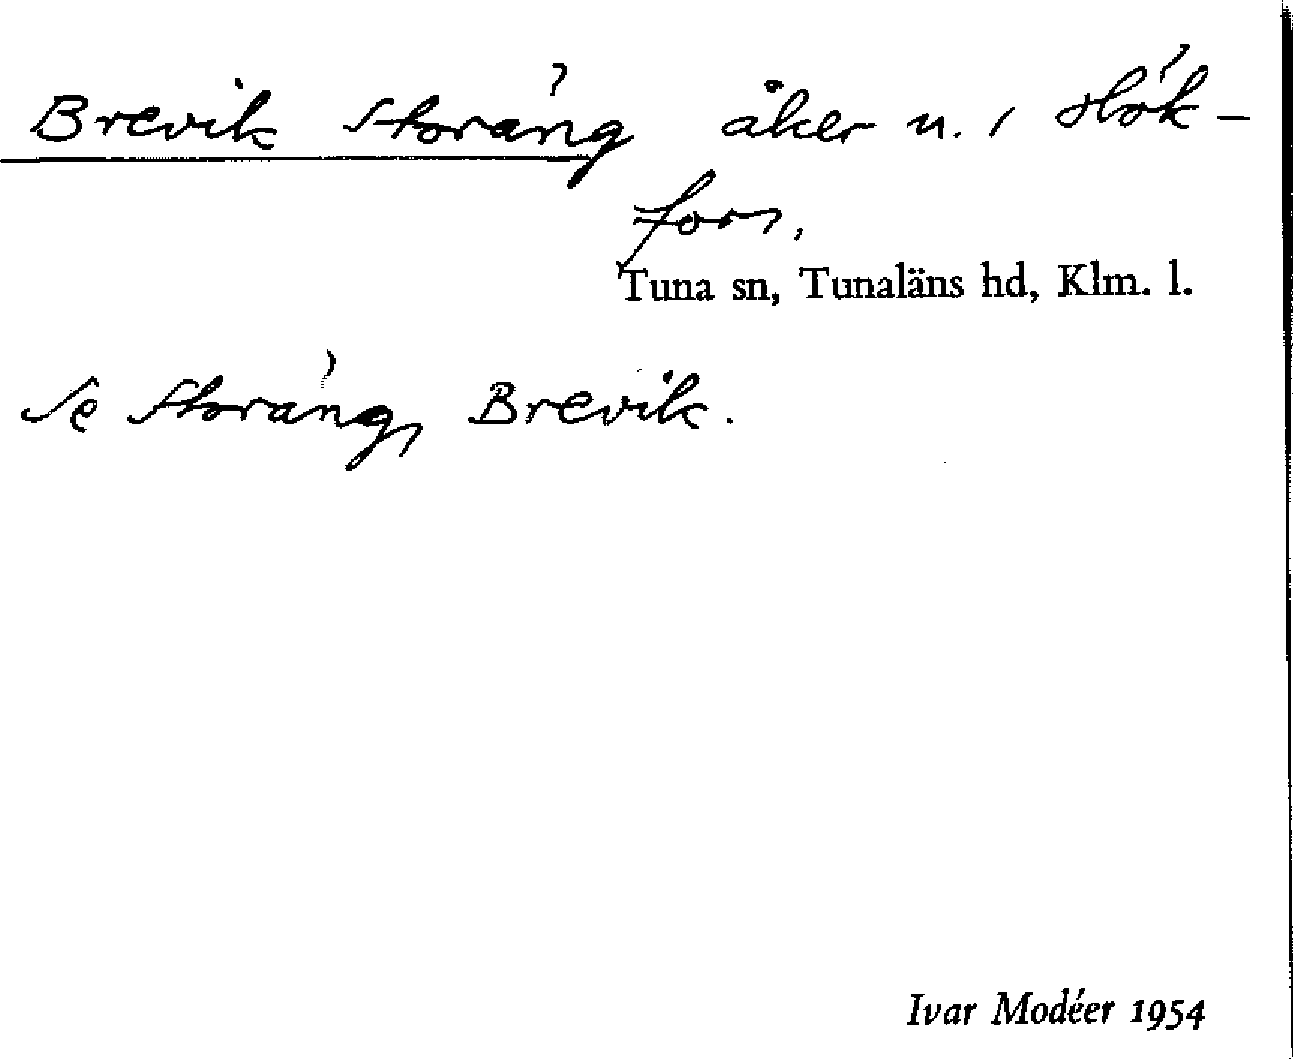 Brevik Storäng åker u. 1 Hök-
fors,
Tuna sn, Tunaläns hd, Klm. l.
Se Storäng, Brevik.
Ivar Modéer 1954